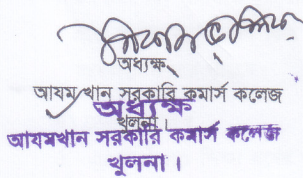 অধ্যক্ষ
আযম খান সরকারি কমার্স কলেজ
খুলনা।
অধ্যক্ষ
আযমখান সরকারি কমার্স কলেজ
খুলনা ।